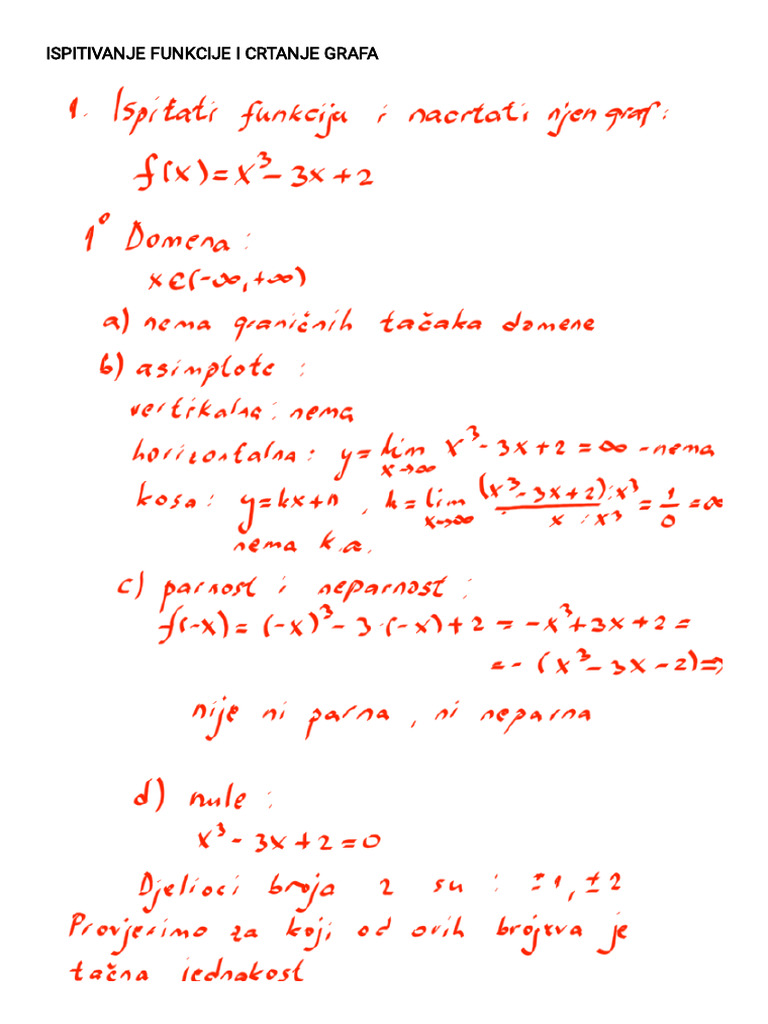 ISPITIVANJE FUNKCIJE I CRTANJE GRAFA
1. Ispitati funkciju i nacrtati njen graf:
f(x)=x³-3x+2
1° Domena:
x∈(-∞,+∞)
a) nema graničnih tačaka domene
b) asimplote:
vertikalna: nema
horizontalna: y=lim x→∞ x³-3x+2=∞ -nema
kosa: y=kx+n, k=lim x→∞ (x³-3x+2):x³ / x:x³ = 1/0 =∞
nema k.a.
c) parnost i neparnost:
f(-x)=(-x)³-3·(-x)+2=-x³+3x+2=
=-(x³-3x-2)⇒
nije ni parna, ni neparna
d) nule:
x³-3x+2=0
Djelioci broja 2 su: ±1,±2
Provjerimo za koji od ovih brojeva je
tačna jednakost